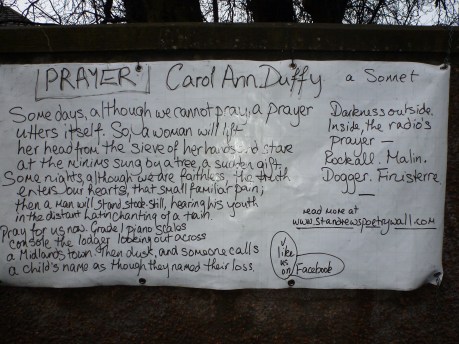 PRAYER Carol Ann Duffy a Sonnet
Some days, although we cannot pray, a prayer
utters itself. So, a woman will lift
her head from the sieve of her hands & stare
at the minims sung by a tree, a sudden gift.
Some nights, although we are faithless, the truth
enters our hearts, that small familiar pain;
then a man will stand stock still, hearing his youth
in the distant Latin chanting of a train.
Pray for us now. Grade 1 piano scales
console the lodger looking out across
a Midlands town. Then dusk, and someone calls
a child's name as though they named their loss.
Darkness outside.
Inside, the radio's
prayer —
Rockall. Malin.
Dogger. Finisterre.
read more at
www.standrewspoetrywall.com
like
us
on
Facebook